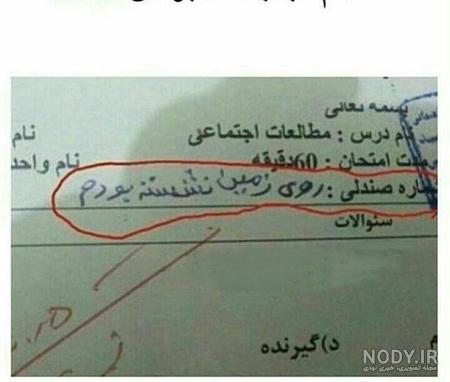 بسمه تعالی
نام درس : مطالعات اجتماعی
نام
مدت امتحان : 60دقیقه
نام واحد
شماره صندلی : روی زمین نشسته بودم
سئوالات
د)گیرنده
NODY.IR
مجله تصویری، خبری نودی